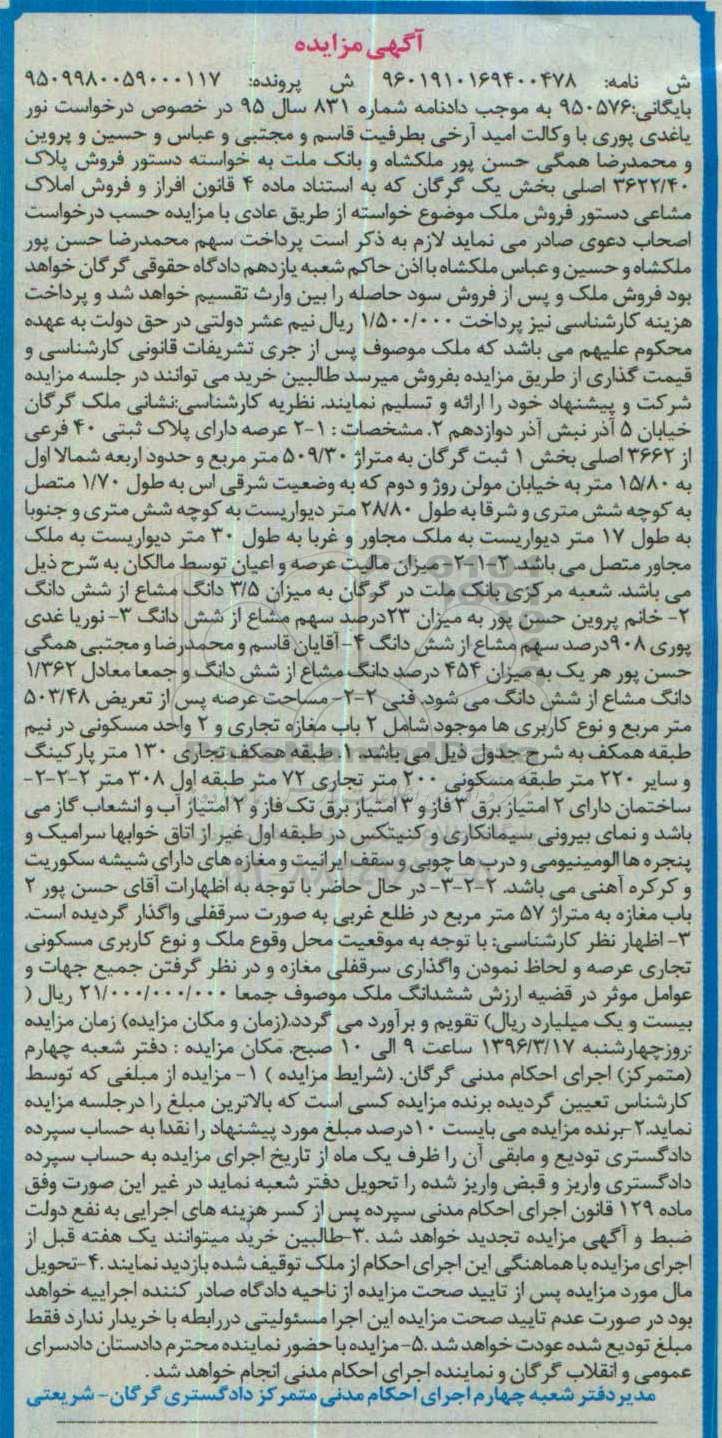 آگهی مزایده
ش نامه: ۹۶۰۱۹۱۰۱۶۹۴۰۰۴۷۸ ش پرونده: ۹۵۰۹۹۸۰۰۵۹۰۰۰۱۱۷
بایگانی:۹۵۰۵۷۶ به موجب دادنامه شماره ۸۳۱ سال ۹۵ در خصوص درخواست نور
یاغدی پوری با وکالت امید آرخی بطرفیت قاسم و مجتبی و عباس و حسین و پروین
و محمدرضا همگی حسن پور ملکشاه و بانک ملت به خواسته دستور فروش پلاک
۳۶۲۲/۴۰ اصلی بخش یک گرگان که به استناد ماده ۴ قانون افراز و فروش املاک
مشاعی دستور فروش ملک موضوع خواسته از طریق عادی با مزایده حسب درخواست
اصحاب دعوی صادر می نماید لازم به ذکر است پرداخت سهم محمدرضا حسن پور
ملکشاه و حسین و عباس ملکشاه با اذن حاکم شعبه یازدهم دادگاه حقوقی گرگان خواهد
بود فروش ملک و پس از فروش سود حاصله را بین وارث تقسیم خواهد شد و پرداخت
هزینه کارشناسی نیز پرداخت ۱/۵۰۰/۰۰۰ ریال نیم عشر دولتی در حق دولت به عهده
محکوم علیهم می باشد که ملک موصوف پس از جری تشریفات قانونی کارشناسی و
قیمت گذاری از طریق مزایده بفروش میرسد طالبین خرید می توانند در جلسه مزایده
شرکت و پیشنهاد خود را ارائه و تسلیم نمایند. نظریه کارشناسی:نشانی ملک گرگان
خیابان ۵ آذر نبش آذر دوازدهم ۲. مشخصات : ۱-۲ عرصه دارای پلاک ثبتی ۴۰ فرعی
از ۳۶۶۲ اصلی بخش ۱ ثبت گرگان به متراژ ۵۰۹/۳۰ متر مربع و حدود اربعه شمالا اول
به ۱۵/۸۰ متر به خیابان مولن روژ و دوم که به وضعیت شرقی اس به طول ۱/۷۰ متصل
به کوچه شش متری و شرقا به طول ۲۸/۸۰ متر دیواریست به کوچه شش متری و جنوبا
به طول ۱۷ متر دیواریست به ملک مجاور و غربا به طول ۳۰ متر دیواریست به ملک
مجاور متصل می باشد. ۲-۱-۲- میزان مالیت عرصه و اعیان توسط مالکان به شرح ذیل
می باشد. شعبه مرکزی بانک ملت در گرگان به میزان ۳/۵ دانگ مشاع از شش دانگ
۲- خانم پروین حسن پور به میزان ۲۳درصد سهم مشاع از شش دانگ ۳- نوریا غدی
پوری ۹۰۸درصد سهم مشاع از شش دانگ ۴- آقایان قاسم و محمدرضا و مجتبی همگی
حسن پور هر یک به میزان ۴۵۴ درصد دانگ مشاع از شش دانگ و جمعا معادل ۱/۳۶۲
دانگ مشاع از شش دانگ می شود. فنی ۲-۲- مساحت عرصه پس از تعریض ۵۰۳/۴۸
متر مربع و نوع کاربری ها موجود شامل ۲ باب مغازه تجاری و ۲ واحد مسکونی در نیم
طبقه همکف به شرح جدول ذیل می باشد. ۱. طبقه همکف تجاری ۱۳۰ متر پارکینگ
و سایر ۲۲۰ متر طبقه مسکونی ۲۰۰ متر تجاری ۷۲ متر طبقه اول ۳۰۸ متر ۲-۲-۲-
ساختمان دارای ۲ امتیاز برق ۳ فاز و ۳ امتیاز برق تک فاز و ۲ امتیاز آب و انشعاب گاز می
باشد و نمای بیرونی سیمانکاری و کنیتکس در طبقه اول غیر از اتاق خوابها سرامیک و
پنجره ها الومینیومی و درب ها چوبی و سقف ایرانیت و مغازه های دارای شیشه سکوریت
و کرکره آهنی می باشد. ۲-۲-۳- در حال حاضر با توجه به اظهارات آقای حسن پور ۲
باب مغازه به متراژ ۵۷ متر مربع در ظلع غربی به صورت سرقفلی واگذار گردیده است.
۳- اظهار نظر کارشناسی: با توجه به موقعیت محل وقوع ملک و نوع کاربری مسکونی
تجاری عرصه و لحاظ نمودن واگذاری سرقفلی مغازه و در نظر گرفتن جمیع جهات و
عوامل موثر در قضیه ارزش ششدانگ ملک موصوف جمعا ۲۱/۰۰۰/۰۰۰/۰۰۰ ریال (
بیست و یک میلیارد ریال) تقویم و برآورد می گردد.(زمان و مکان مزایده) زمان مزایده
:روزچهارشنبه ۱۳۹۶/۳/۱۷ ساعت ۹ الی ۱۰ صبح. مکان مزایده : دفتر شعبه چهارم
(متمرکز) اجرای احکام مدنی گرگان. (شرایط مزایده ) ۱- مزایده از مبلغی که توسط
کارشناس تعیین گردیده برنده مزایده کسی است که بالاترین مبلغ را درجلسه مزایده
نماید.۲-برنده مزایده می بایست ۱۰درصد مبلغ مورد پیشنهاد را نقدا به حساب سپرده
دادگستری تودیع و مابقی آن را ظرف یک ماه از تاریخ اجرای مزایده به حساب سپرده
دادگستری واریز و قبض واریز شده را تحویل دفتر شعبه نماید در غیر این صورت وفق
ماده ۱۲۹ قانون اجرای احکام مدنی سپرده پس از کسر هزینه های اجرایی به نفع دولت
ضبط و آگهی مزایده تجدید خواهد شد .۳-طالبین خرید میتوانند یک هفته قبل از
اجرای مزایده با هماهنگی این اجرای احکام از ملک توقیف شده بازدید نمایند .۴-تحویل
مال مورد مزایده پس از تایید صحت مزایده از ناحیه دادگاه صادر کننده اجراییه خواهد
بود در صورت عدم تایید صحت مزایده این اجرا مسئولیتی دررابطه با خریدار ندارد فقط
مبلغ تودیع شده عودت خواهد شد .۵-مزایده با حضور نماینده محترم دادستان دادسرای
عمومی و انقلاب گرگان و نماینده اجرای احکام مدنی انجام خواهد شد .
مدیر دفتر شعبه چهارم اجرای احکام مدنی متمرکز دادگستری گرگان- شریعتی